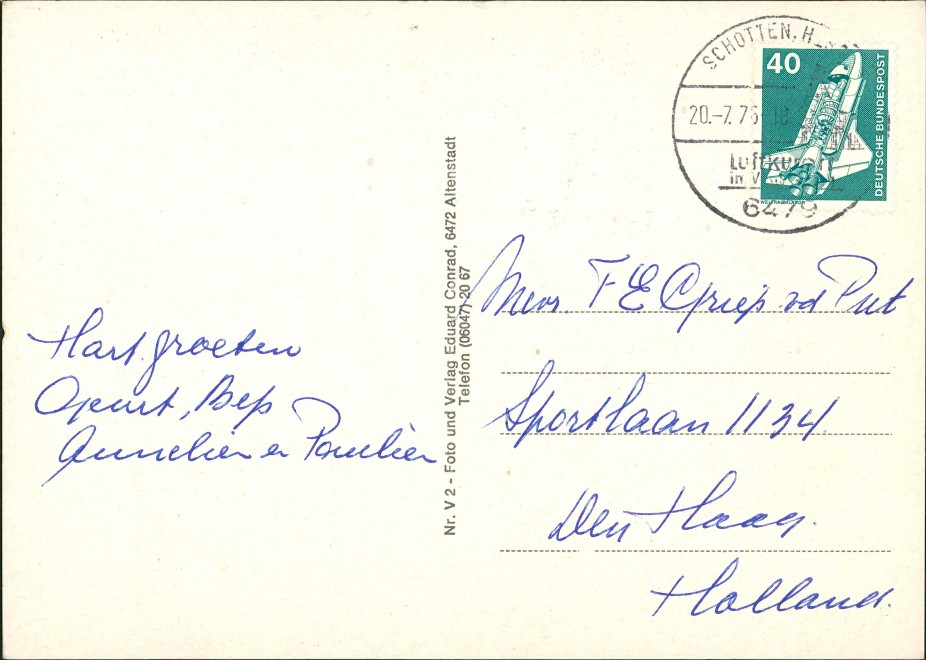 Hart. groeten
Bep
Annelien en Paulien
Nr. V 2 - Foto und Verlag Eduard Conrad, 6472 Altenstadt
Telefon (06047) 20 67
SCHOTTEN, HESS
20.-7.76 18
Luftkurort
IN V
6479
40
DEUTSCHE BUNDESPOST
Mevr. F E Griep vd Put
Sportlaan 1134
Den Haag.
Holland.